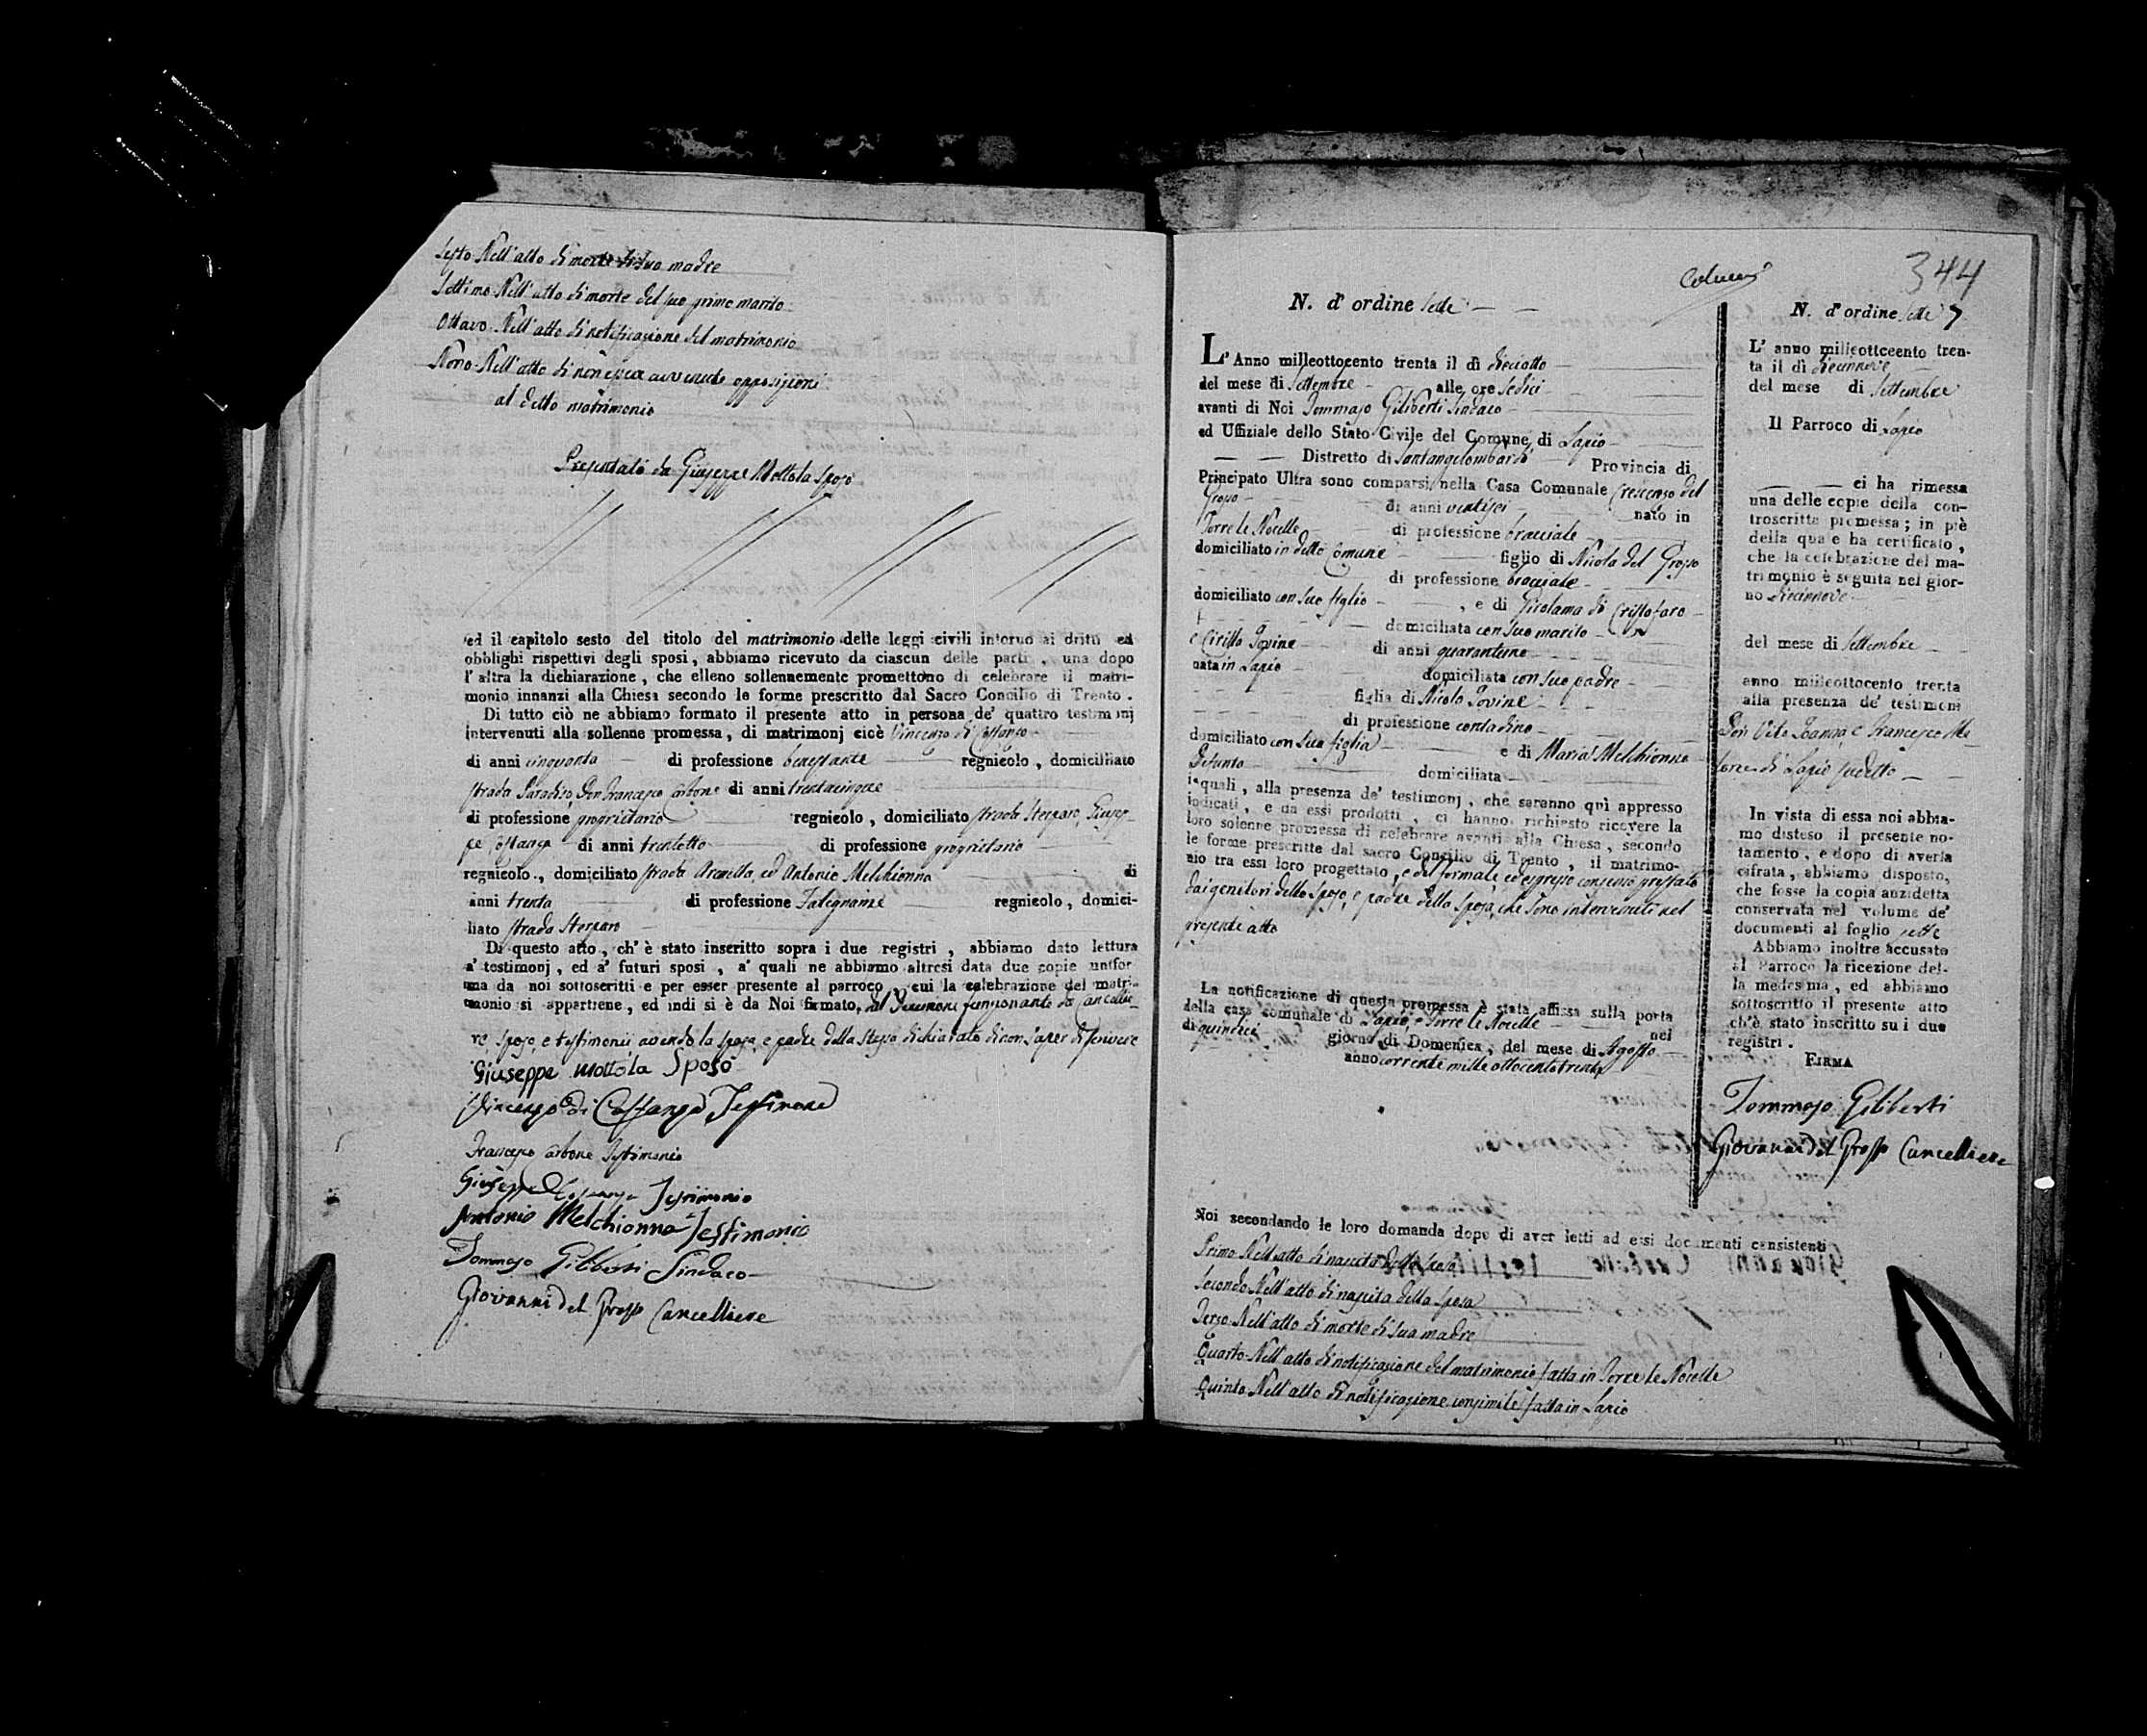 Sesto Nell'atto di morte di sua madre
Settimo Nell'atto di morte del suo primo marito
Ottavo Nell'atto di notificazione del matrimonio
Nono Nell'atto di non essere avvenute opposizioni
al detto matrimonio
Presentati da Giuseppe Mottola sposo
ed il capitolo sesto del titolo del matrimonio delle leggi civili intorno ai dritti ed
obblighi rispettivi degli sposi, abbiamo ricevuto da ciascun delle parti, una dopo
l'altra la dichiarazione, che elleno sollennemente promettono di celebrare il matri-
monio innanzi alla Chiesa secondo le forme prescritto dal Sacro Concilio di Trento.
Di tutto ciò ne abbiamo formato il presente atto in persona de' quattro testimonj
intervenuti alla sollenne promessa, di matrimonj cioè Vincenzo di
di anni cinquanta di professione benestante regnicolo, domiciliato
strada Paradiso, Don Francesco Carbone di anni trentacinque
di professione proprietario regnicolo, domiciliato strada Sterparo, Giusep-
pe Costanza di anni trentotto di professione proprietario
regnicolo., domiciliato strada ed Antonio Melchionna di
anni trenta di professione Falegname regnicolo, domici-
liato strada Sterparo
Di questo atto, ch' è stato inscritto sopra i due registri, abbiamo dato lettura
a' testimonj, ed a' futuri sposi, a' quali ne abbiamo altresi data due copie unifor
ma da noi sottoscritti e per esser presente al parroco, cui la celebrazione del matri-
monio si appartiene, ed indi si è da Noi firmato, dal Decurione funzionante da Cancellie-
re, sposo, e testimonii avendo la sposa, e padre della stessa dichiarato di non saper scrivere
Giuseppe Mottola Sposo
Vincenzo di Costanza Testimone
Francesco Carbone Testimonio
Giuseppe Costanza Testimonio
Antonio Melchionna Testimonio
Tommaso Giliberti Sindaco
Giovanni del Grosso Cancelliere
344
N. d' ordine sette
L' Anno milleottocento trenta il dì diciotto
del mese di Settembre alle ore sedici
avanti di Noi Tommaso Giliberti Sindaco
ed Uffiziale dello Stato Civile del Comune di Lapio
Distretto di Santangelombardo Provincia di
Principato Ultra sono comparsi nella Casa Comunale Crescenzo del
Grosso di anni ventisei nato in
Torre le Nocelle di professione bracciale
domiciliato in detto Comune figlio di Nicola del Grosso
di professione bracciale
domiciliato con suo figlio, e di Girolama di Cristofaro
domiciliata con suo marito
e Cirilla Iovine di anni quarantuno
nata in Lapio domiciliata con suo padre
figlia di Nicola Iovine
di professione contadino
domiciliato con sua figlia e di Maria Melchionna
Defunta domiciliata
i quali, alla presenza de' testimonj, che saranno qui appresso
indicati, e da essi prodotti, ci hanno richiesto ricevere la
loro solenne promessa di celebrare avanti alla Chiesa, secondo
le forme prescritte dal sacro Concilio di Trento, il matrimo-
nio tra essi loro progettato, e del formale, ed espresso consenso prestato
dai genitori dello sposo, e padre della sposa, che sono intervenuti nel
presente atto
La notificazione di questa promessa è stata affissa sulla porta
della casa comunale di Lapio, e Torre le Nocelle nel
di quindici giorno di Domenica, del mese di Agosto
anno corrente mille ottocentotrenta
Noi secondando le loro domanda dopo di aver letti ad essi documenti consistenti
Primo Nell'atto di nascita dello sposo
Secondo Nell'atto di nascita della sposa
Terzo Nell'atto di morte di sua madre
Quarto Nell'atto di notificazione del matrimonio fatta in Torre le Nocelle
Quinto Nell'atto di notificazione consimile fatta in Lapio
N. d' ordine sette 7
L' anno milleottoceento tren-
ta il dì diecinnove
del mese di Settembre
Il Parroco di Lapio
ci ha rimessa
una delle copie della con-
troscritta promessa; in piè
della quale ha certificato,
che la celebrazione del ma-
trimonio è seguita nel gior-
no diecinnove
del mese di Settembre
anno milleottocento trenta
alla presenza de' testimoni
Don Vito Ioanna, e Francesco
di Lapio sudetto
In vista di essa noi abbia-
mo disteso il presente no-
tamento, e dopo di averla
cifrata, abbiamo disposto,
che fosse la copia anzidetta
conservata nel volume de'
documenti al foglio sette
Abbiamo inoltre accusato
al Parroco la ricezione del-
la medesima, ed abbiamo
sottoscritto il presente atto
ch'è stato inscritto su i due
registri.
FIRMA
Tommaso Giliberti
Giovanni del Grosso Cancelliere